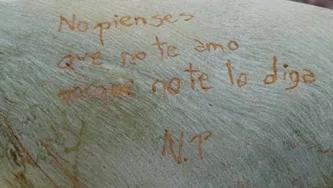 No pienses
que no te amo
porque no te lo diga
N.T